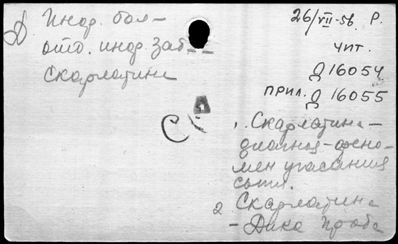 Д
Инф. бол-
отд. инф. заб.
Скарлатина
26/VII-56. Р.
чит.
Д 16054
прил. Д 16055
С
Д
1. Скарлатина -
диагноз - фено-
мен угасания
сыпи.
2 Скарлатина
- Дика проба